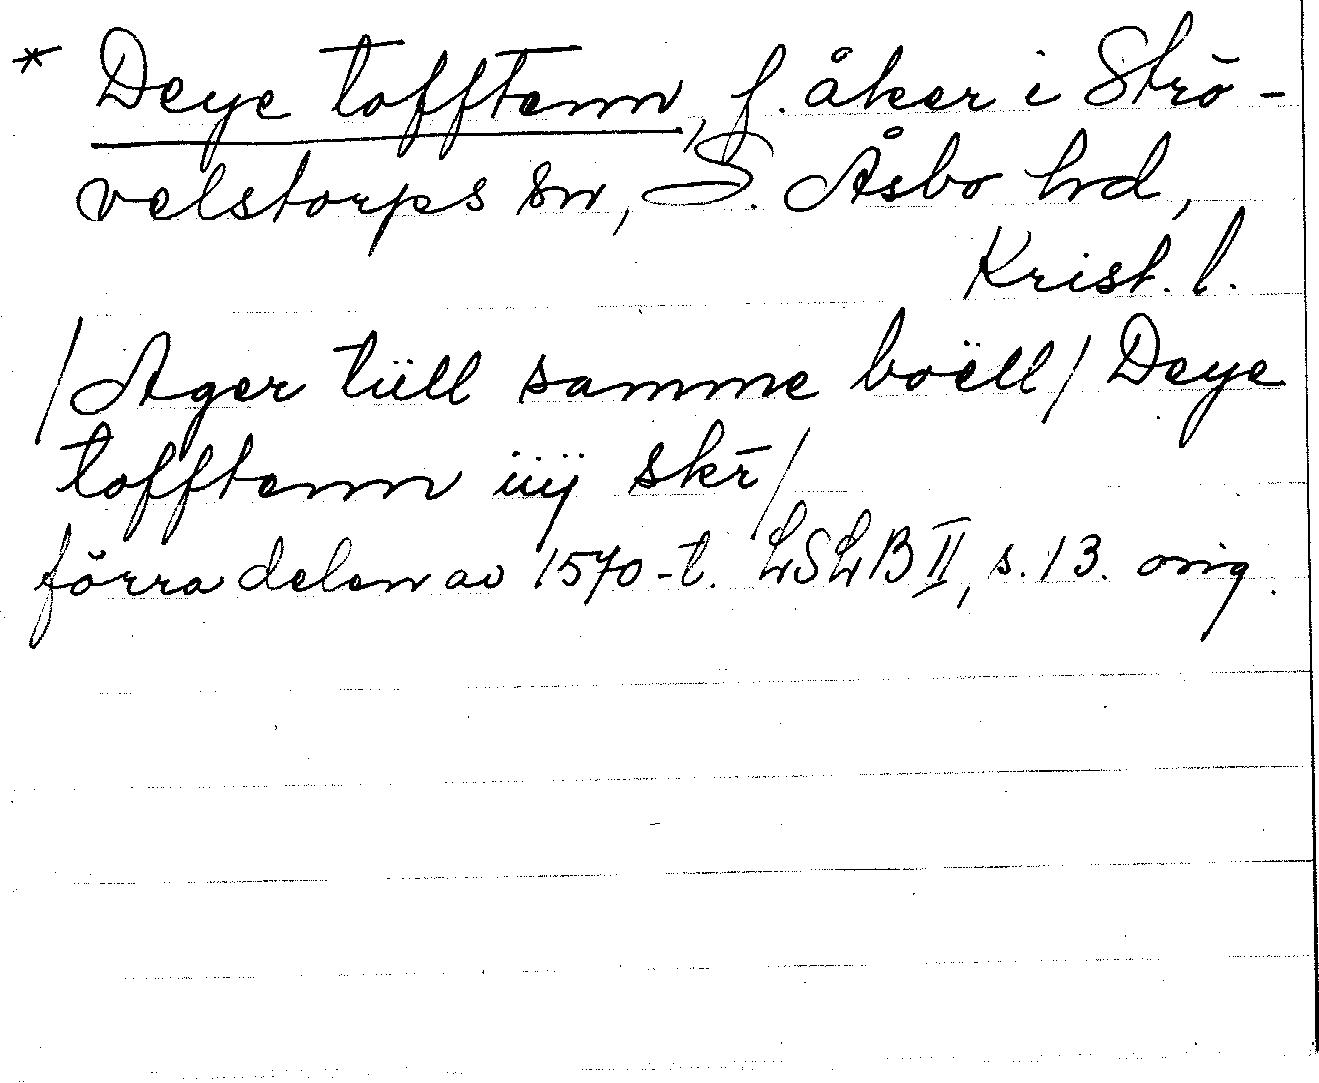 * Deye tofftenn, f. åker i Strö-
velstorps sn, S. Åsbo hd,
Krist. l.
/Ager tüll samme boëll/ Deye
tofftenn iiij skr̄/
förra delen av 1570-t. LSLB II, s. 13. orig.